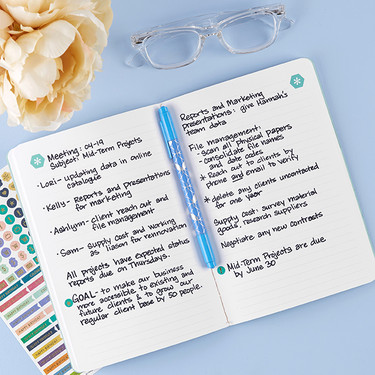 Meeting: 04-19
Subject: Mid-Term Projects
·Lori- updating data in online
catalogue
·Kelly- Reports and presentations
for marketing
·Ashlynn- client reach out and
file management
·Sam- supply cost and working
as liason for rennovation
All projects have expected status
reports due on Thursdays.
GOAL- to make our business
more accessible to existing and
future clients & to grow our
regular client base by 50 people.
Reports and Marketing
presentations: give Hannah's
team data
File management:
- Scan all physical papers
- consolidate file names
and date codes
* Reach out to clients by
phone and email to verify
* delete any clients uncontacted
for one year
Supply cost: survey material
goods, research suppliers
Negotiate any new contracts
Mid-Term Projects are due
by June 30